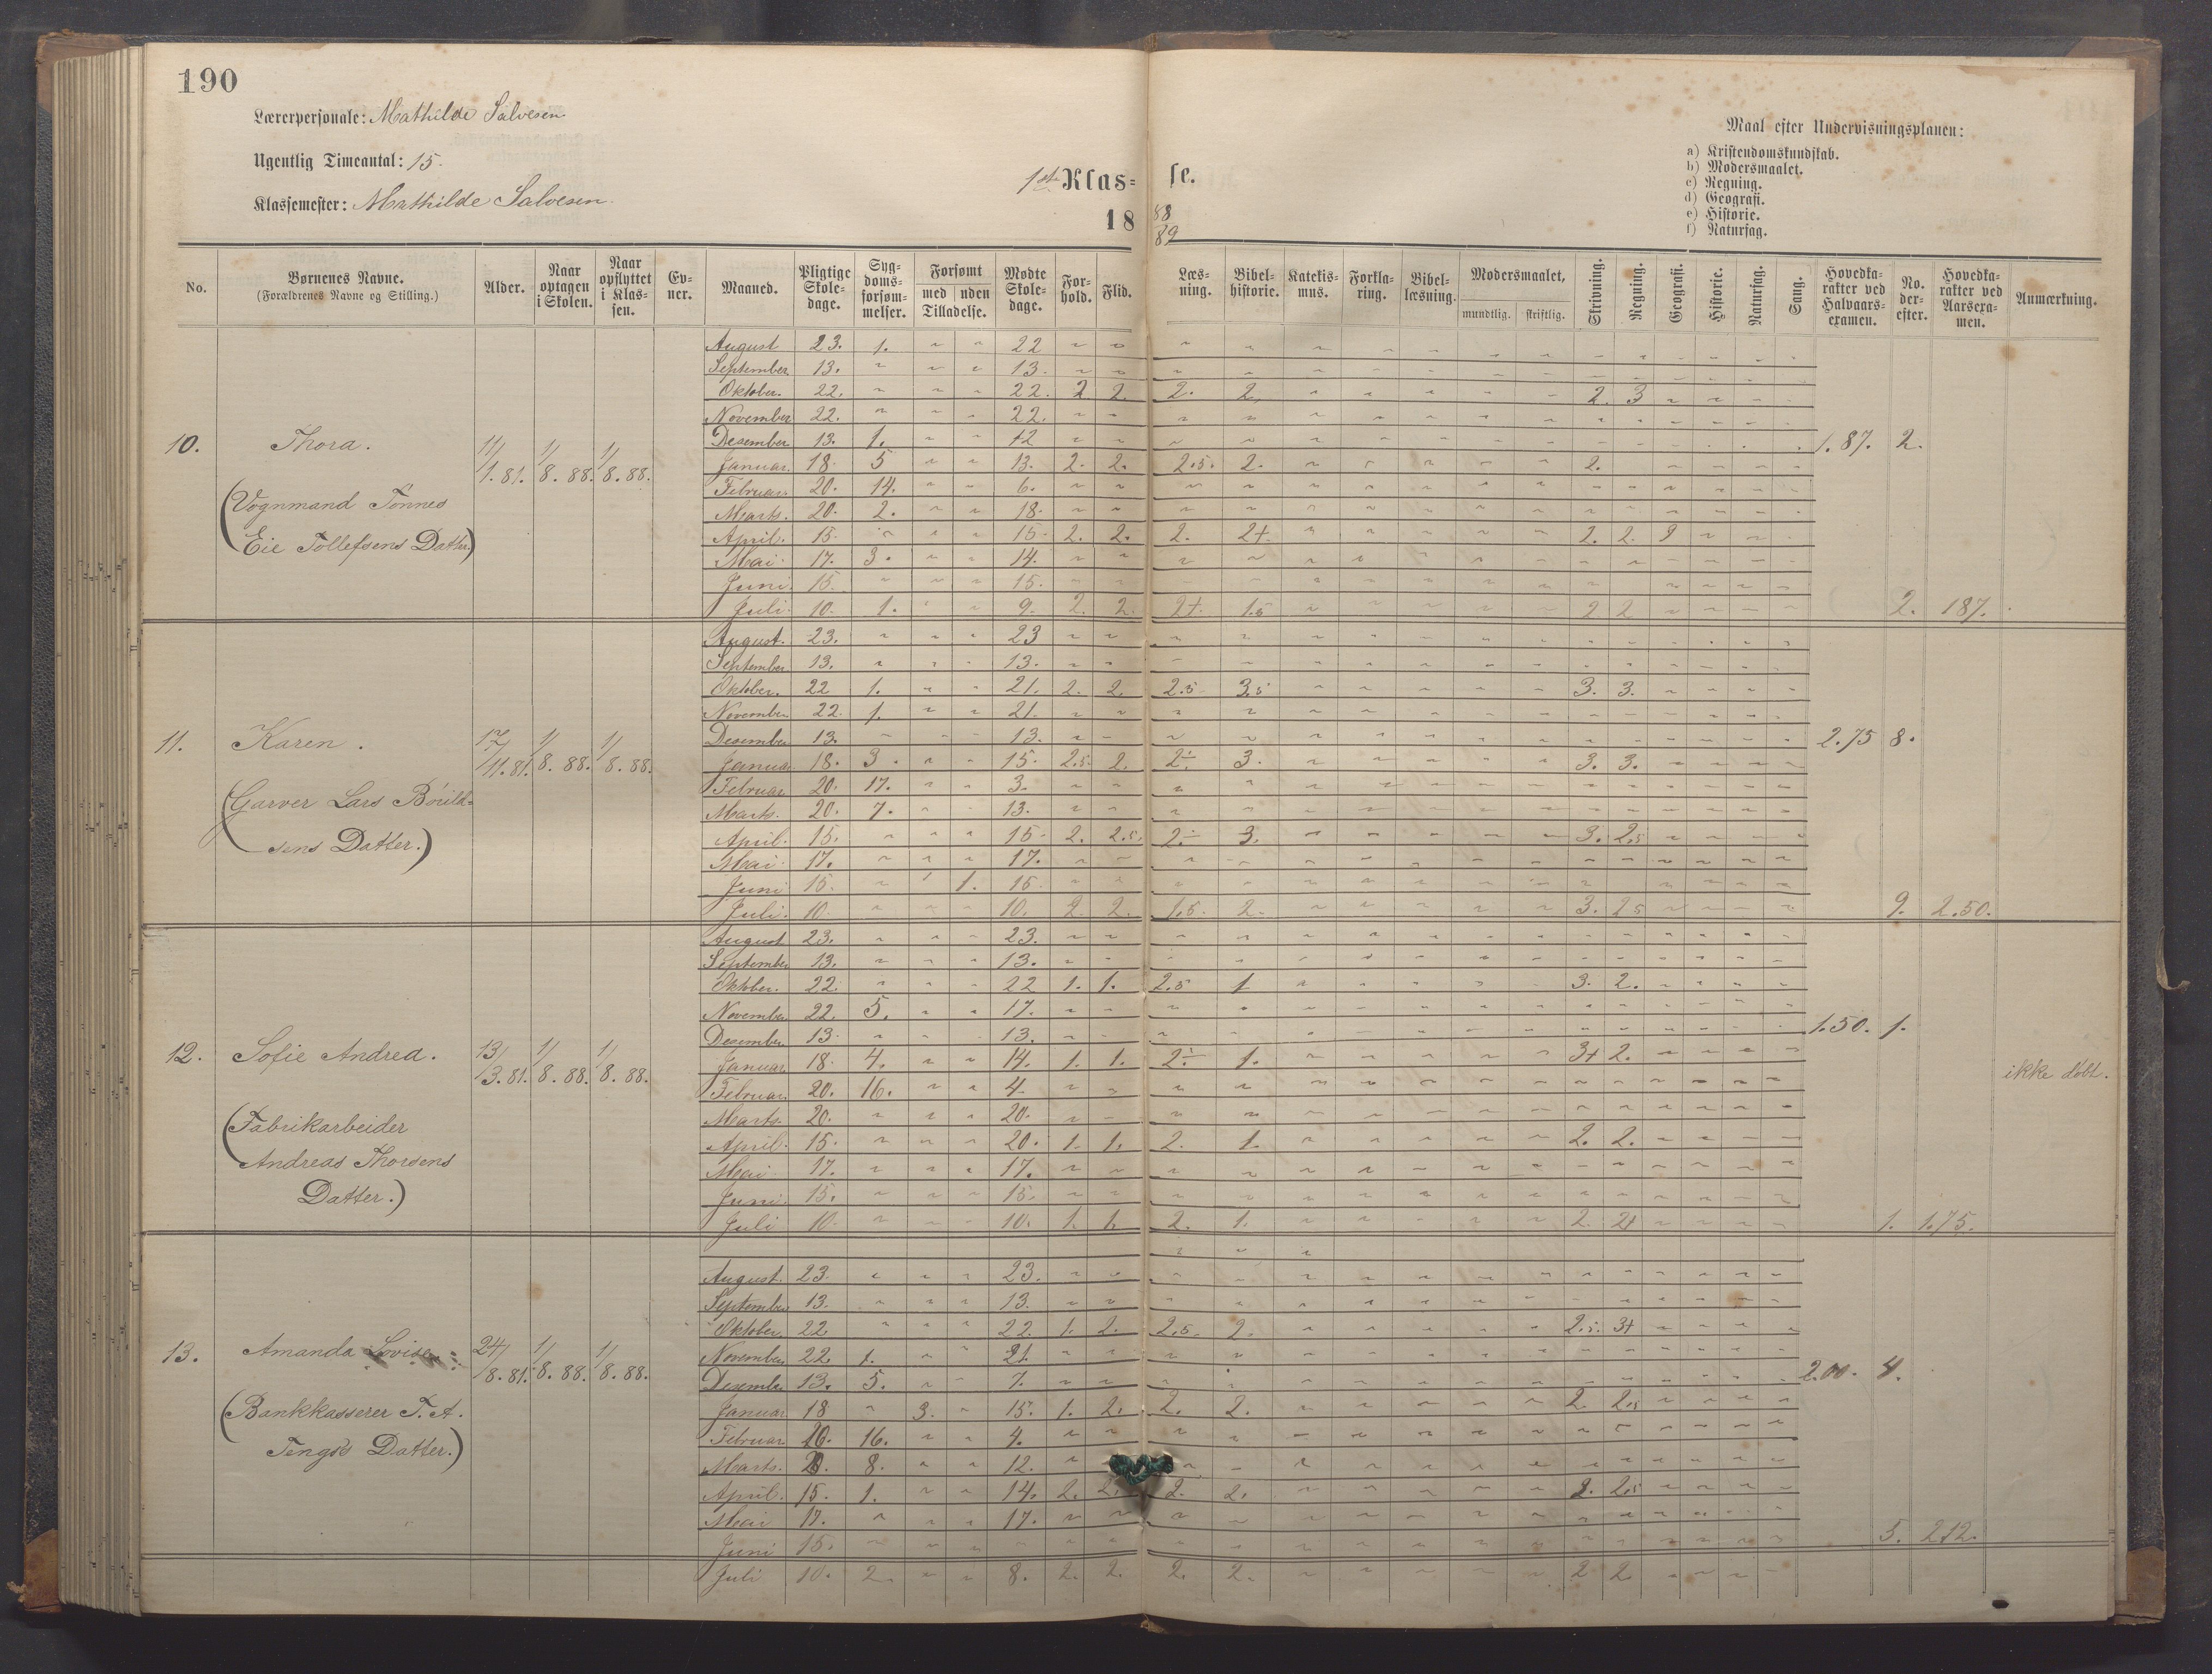 190
Lærerpersonale: Mathilde Salvesen
Ugentlig Timeantal: 15.
Klassemester: Mathilde Salvesen.
1ste Klas= se.
18 88/89
Maal efter Undervisningsplanen:
a) Kristendomskundskab.
b) Modersmaalet.
c) Regning.
d) Geografi.
e) Historie.
f) Naturfag.
No. Børnenes Navne. (Forældrenes Navne og Stilling.) Alder. Naar optagen i Skolen. Naar opflyttet i Klassen. Evner. Maaned. Pligtige Skoledage. Sygdomsforsømmelser. Forsømt med uden Tilladelse. Mødte Skoledage. Forhold. Flid. Læsning. Bibelhistorie. Katekismus. Forklaring. Bibellæsning. Modersmaalet, mundtlig. skriftlig. Skrivning. Regning. Geografi. Historie. Naturfag. Sang. Hovedkarakter ved Halvaarsexamen. No. derefter. Hovedkarakter ved Aarsexamen. Anmærkning.
10. Thora.
11/1.81. 1/8.88. 1/8.88.
(Vognmand Tønnes
Eie Tollefsens Datter.)
August 23. 1. 22
September 13. 13.
Oktober. 22. 22. 2 2. 2. 2. 2. 3
November 22. 22.
Desember 13. 1. 12 1.87. 2.
Januar. 18. 5 13. 2. 2. 2.5. 2. 2.
Februar. 20. 14. 6.
Marts. 20. 2. 18.
April. 15. 15. 2. 2. 2. 2+. 2. 2.
Mai. 17. 3. 14.
Juni. 15. 15.
Juli. 10. 1. 9. 2. 2. 2+. 1.5 2 2 2. 187.
11. Karen.
17/11.81. 1/8.88. 1/8.88.
(Garver Lars
sens Datter.)
August. 23. 23
September 13. 13.
Oktober. 22 1. 21. 2. 2. 2.5 3.5 3. 3.
November. 22. 1. 21.
Desember 13. 13. 2.75 8.
Januar 18. 3. 15. 2.5 2. 2÷ 3. 3. 3.
Februar 20. 17. 3.
Marts. 20. 7. 13.
April. 15. 15. 2. 2.5. 2÷ 3. 3. 2.5
Mai. 17. 17.
Juni 15. 1. 15.
Juli. 10. 10. 2. 2. 1.5. 2. 3. 2.5 9. 2.50.
12. Sofie Andrea.
13/3.81. 1/8.88. 1/8.88.
(Fabrikarbeider
Andreas Thorsens
Datter.)
August 23. 23.
September 13. 13.
Oktober. 22. 22 1. 1. 2.5 1 3. 2.
November 22. 5. 17.
Desember 13. 13. 1.50. 1.
Januar 18. 4. 14. 1. 1. 2÷ 1. 3+ 2.
Februar 20. 16. 4
Marts. 20. 20.
April. 15. 20. 1. 1. 2. 1. 2. 2.
Mai. 17. 17.
Juni. 15. 15.
Juli 10. 10. 1. 1. 2. 1. 2. 2+ 1. 1.75.
ikke døbt.
13. Amanda Lovise
24/8.81. 1/8.88. 1/8.88.
(Bankkasserer T. A.
Tengs's Datter.)
August. 23. 23.
September 13. 13.
Oktober. 22 22. 1. 2. 2.5. 2. 2.5. 3+
November 22. 1. 21.
Desember 13. 5. 7. 2.00. 4.
Januar 18 3. 15. 1. 2. 2. 2. 2. 2.5
Februar 16. 4.
Marts. 8. 12.
April. 15. 1. 14. 2. 2. 2. 2. 2. 2.5
Mai 17. 17.
Juni 15. 5. 212.
Juli 10. 2. 8. 2. 2. 2. 2. 2 2.